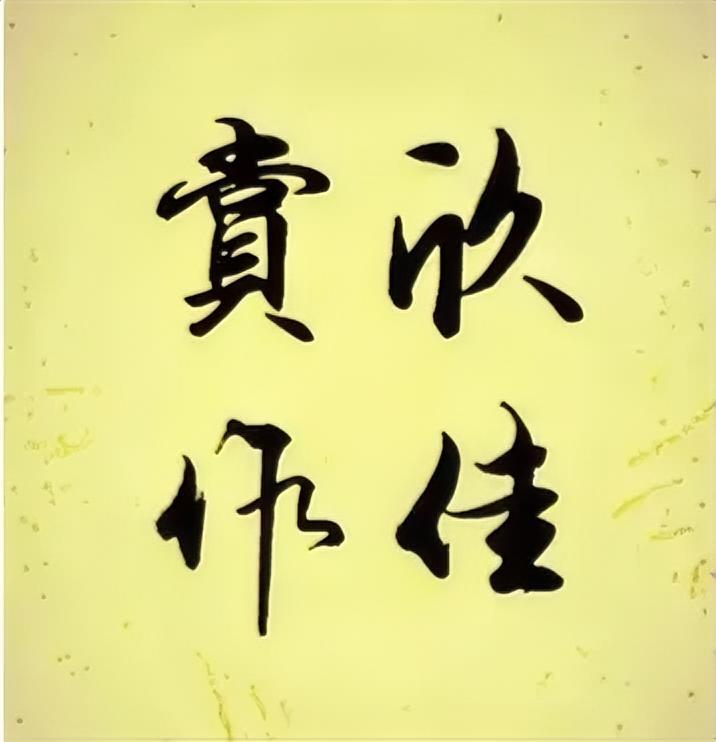 欣賞
佳作